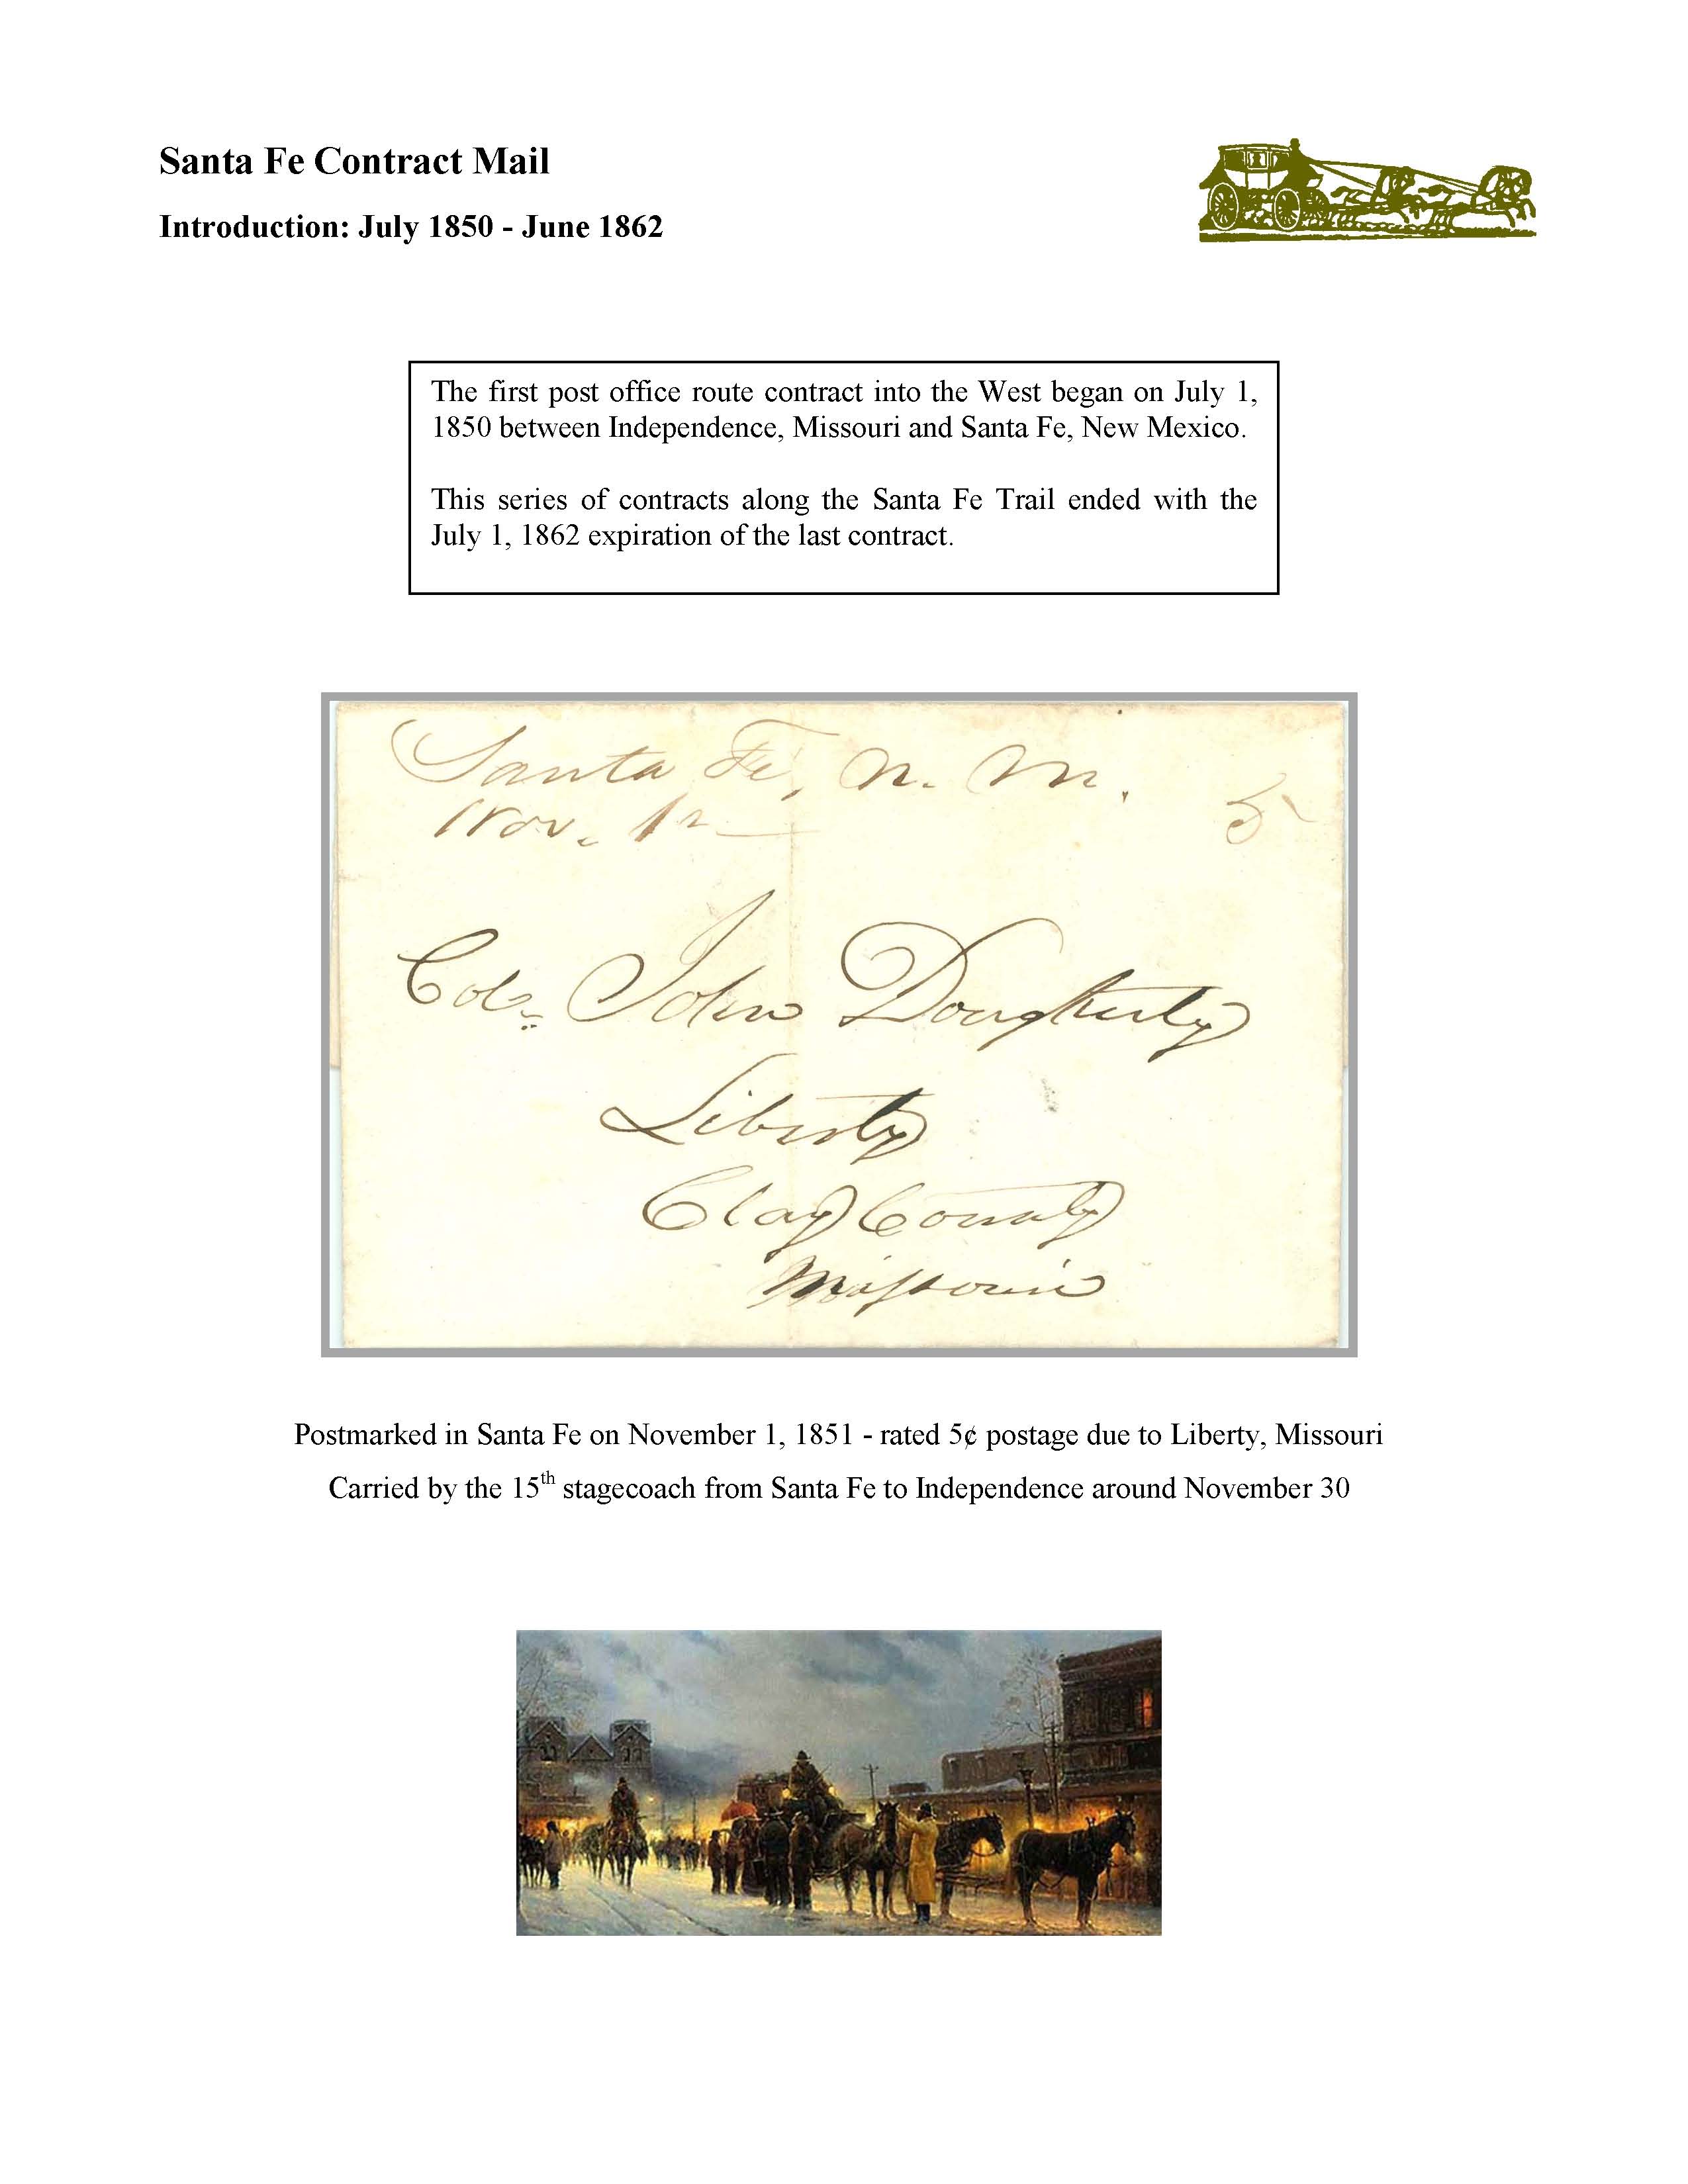 Santa Fe Contract Mail
Introduction: July 1850 - June 1862
The first post office route contract into the West began on July 1,
1850 between Independence, Missouri and Santa Fe, New Mexico.
This series of contracts along the Santa Fe Trail ended with the
July 1, 1862 expiration of the last contract.
Santa Fe, N. M.
Nov. 1st 5
Col. John Dougherty
Liberty
Clay County
Missouri
Postmarked in Santa Fe on November 1, 1851 - rated 5¢ postage due to Liberty, Missouri
Carried by the 15th stagecoach from Santa Fe to Independence around November 30